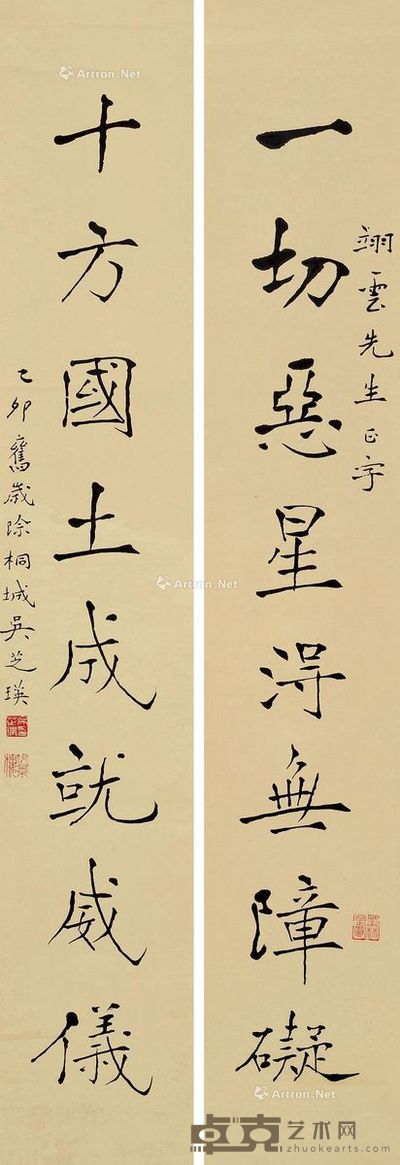 一切惡星得無障礙
翊雲先生正字
十方國土成就威儀
乙卯舊歲除桐城吳芝瑛
Artron.Net
Artron.Net
Artron.Net
卓克艺术网
www.zhuokearts.com